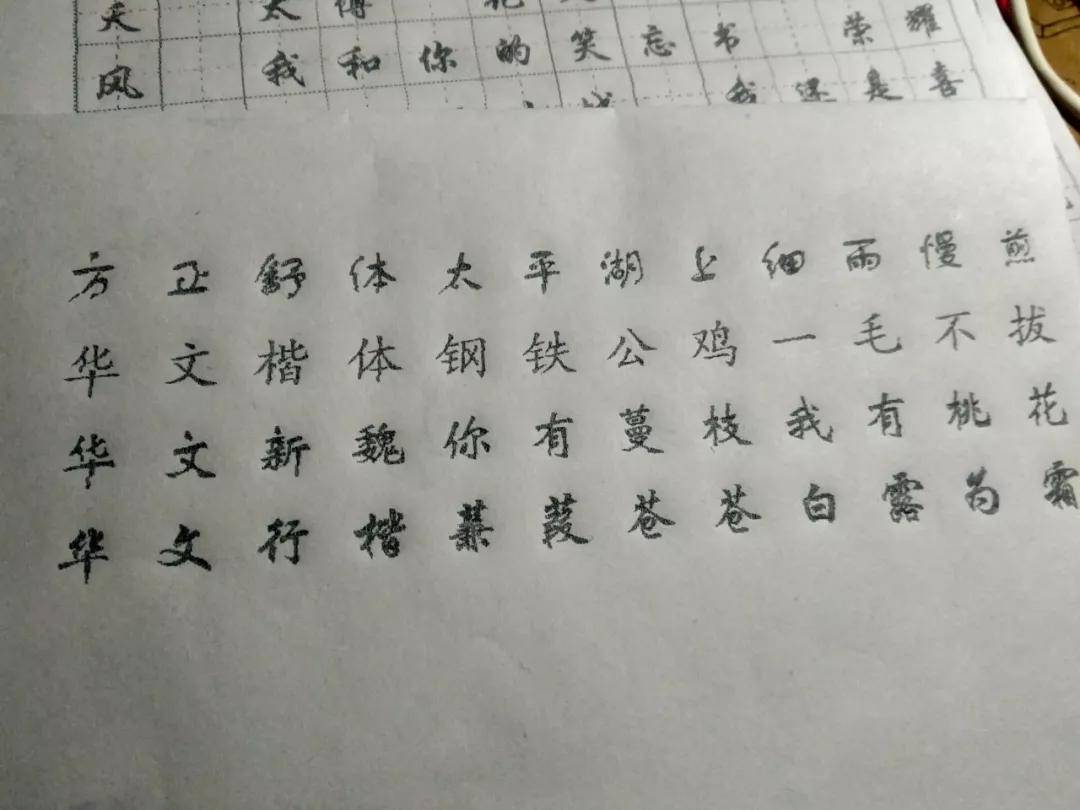 天 太 博
风 我和你的笑忘书 荣耀
我还是喜
方正舒体太平湖上细雨慢煎
华文楷体钢铁公鸡一毛不拔
华文新魏你有蔓枝我有桃花
华文行楷蒹葭苍苍白露为霜